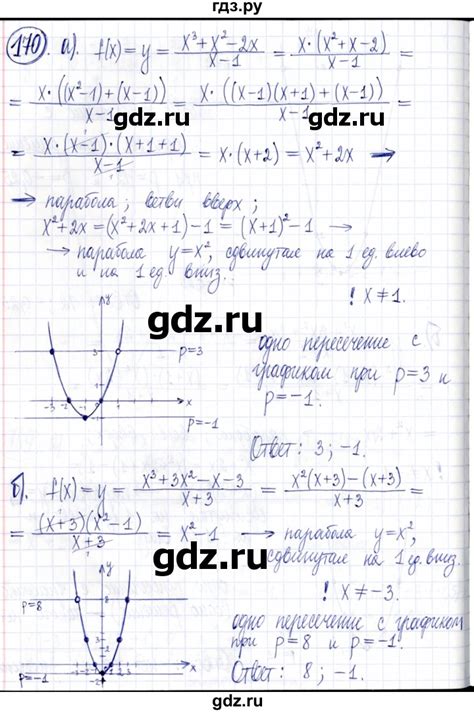 гдз.ру
170. а). f(x) = y = (x³+x²-2x)/(x-1) = x·(x²+x-2)/(x-1) =
= x·((x²-1)+(x-1))/(x-1) = x·((x-1)(x+1)+(x-1))/(x-1) =
gdz.ru
= x·(x-1)·(x+1+1)/(x-1) = x·(x+2) = x²+2x →
→ парабола; ветви вверх;
x²+2x = (x²+2x+1)-1 = (x+1)²-1 →
→ парабола y=x², сдвинутая на 1 ед. влево
и на 1 ед. вниз.
! x≠1.
gdz.ru
y
3
p=3
-3 -2 -1 1 x
-1
p=-1
одно пересечение с
графиком при p=3 и
p=-1.
Ответ: 3; -1.
gdz.ru
б). f(x) = y = (x³+3x²-x-3)/(x+3) = (x²(x+3)-(x+3))/(x+3) =
= (x+3)(x²-1)/(x+3) = x²-1 → парабола y=x²,
сдвинутая на 1 ед. вниз.
gdz.ru
! x≠-3.
y
p=8
8
3
x
-2
одно пересечение с графиком
при p=8 и p=-1.
Ответ: 8; -1.
gdz.ru
gdz.ru